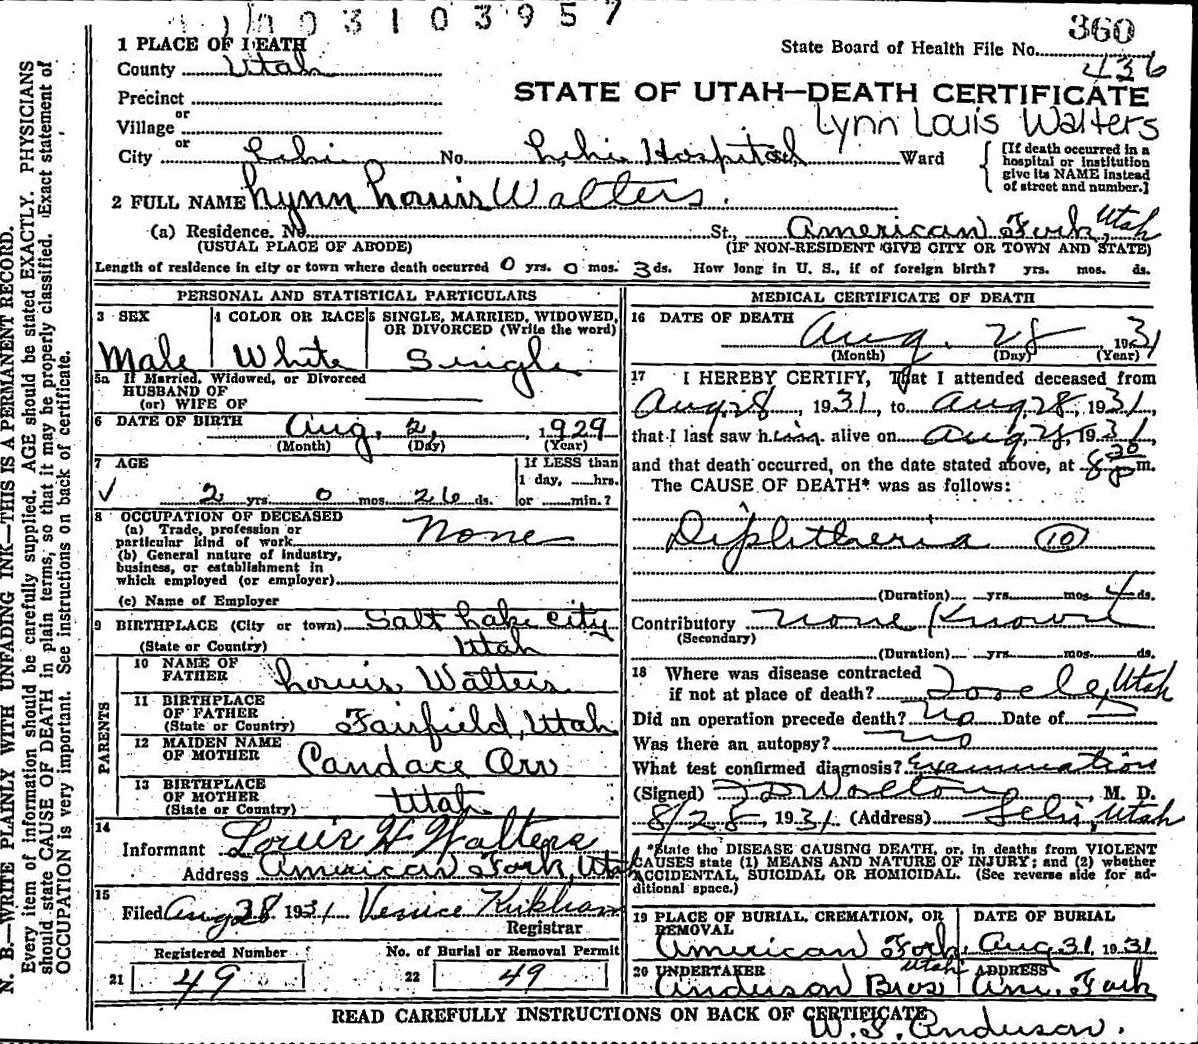 003103957
360
1 PLACE OF DEATH
State Board of Health File No.
436
County Utah
STATE OF UTAH—DEATH CERTIFICATE
Precinct
or
Village
Lynn Louis Walters
or
City Lehi No. Lehi Hospital Ward
[If death occurred in a
hospital or institution
give its NAME instead
of street and number.]
2 FULL NAME Lynn Louis Walters.
(a) Residence. No. St., American Fork, Utah
(USUAL PLACE OF ABODE) (IF NON-RESIDENT GIVE CITY OR TOWN AND STATE)
Length of residence in city or town where death occurred 0 yrs. 0 mos. 3 ds. How long in U. S., if of foreign birth? yrs. mos. ds.
PERSONAL AND STATISTICAL PARTICULARS
3 SEX 4 COLOR OR RACE 5 SINGLE, MARRIED, WIDOWED,
OR DIVORCED (Write the word)
Male White Single
5a If Married, Widowed, or Divorced
HUSBAND OF
(or) WIFE OF
6 DATE OF BIRTH Aug. 2, 1929
(Month) (Day) (Year)
7 AGE If LESS than
1 day, hrs.
2 yrs. 0 mos. 26 ds. or min.?
8 OCCUPATION OF DECEASED
(a) Trade, profession or
particular kind of work None
(b) General nature of industry,
business, or establishment in
which employed (or employer)
(c) Name of Employer
9 BIRTHPLACE (City or town) Salt Lake City
(State or Country) Utah
PARENTS
10 NAME OF
FATHER Louis Walters
11 BIRTHPLACE
OF FATHER
(State or Country) Fairfield, Utah
12 MAIDEN NAME
OF MOTHER Candace Orr
13 BIRTHPLACE
OF MOTHER
(State or Country) Utah
14
Informant Louis H Walters
Address American Fork, Utah
15
Filed Aug 28 1931 Venice Kirkham
Registrar
Registered Number No. of Burial or Removal Permit
21 49 22 49
MEDICAL CERTIFICATE OF DEATH
16 DATE OF DEATH
Aug. 28 1931
(Month) (Day) (Year)
17 I HEREBY CERTIFY, That I attended deceased from
Aug. 28, 1931, to Aug. 28, 1931,
that I last saw him alive on Aug. 28, 1931,
and that death occurred, on the date stated above, at 8 30 p m.
The CAUSE OF DEATH* was as follows:
Diphtheria 10
(Duration) yrs. mos. 4 ds.
Contributory None Known
(Secondary)
(Duration) yrs. mos. ds.
18 Where was disease contracted
if not at place of death? Tooele, Utah
Did an operation precede death? No Date of
Was there an autopsy? No
What test confirmed diagnosis? Examination
(Signed) Worlton, M. D.
8/28, 1931 (Address) Lehi, Utah
*State the DISEASE CAUSING DEATH, or, in deaths from VIOLENT
CAUSES state (1) MEANS AND NATURE OF INJURY; and (2) whether
ACCIDENTAL, SUICIDAL OR HOMICIDAL. (See reverse side for ad-
ditional space.)
19 PLACE OF BURIAL, CREMATION, OR
REMOVAL DATE OF BURIAL
American Fork, Utah Aug 31, 1931
20 UNDERTAKER ADDRESS
Anderson Bros Am. Fork
READ CAREFULLY INSTRUCTIONS ON BACK OF CERTIFICATE
Anderson.
N. B.—WRITE PLAINLY WITH UNFADING INK—THIS IS A PERMANENT RECORD.
Every item of information should be carefully supplied. AGE should be stated EXACTLY. PHYSICIANS
should state CAUSE OF DEATH in plain terms, so that it may be properly classified. Exact statement of
OCCUPATION is very important. See instructions on back of certificate.